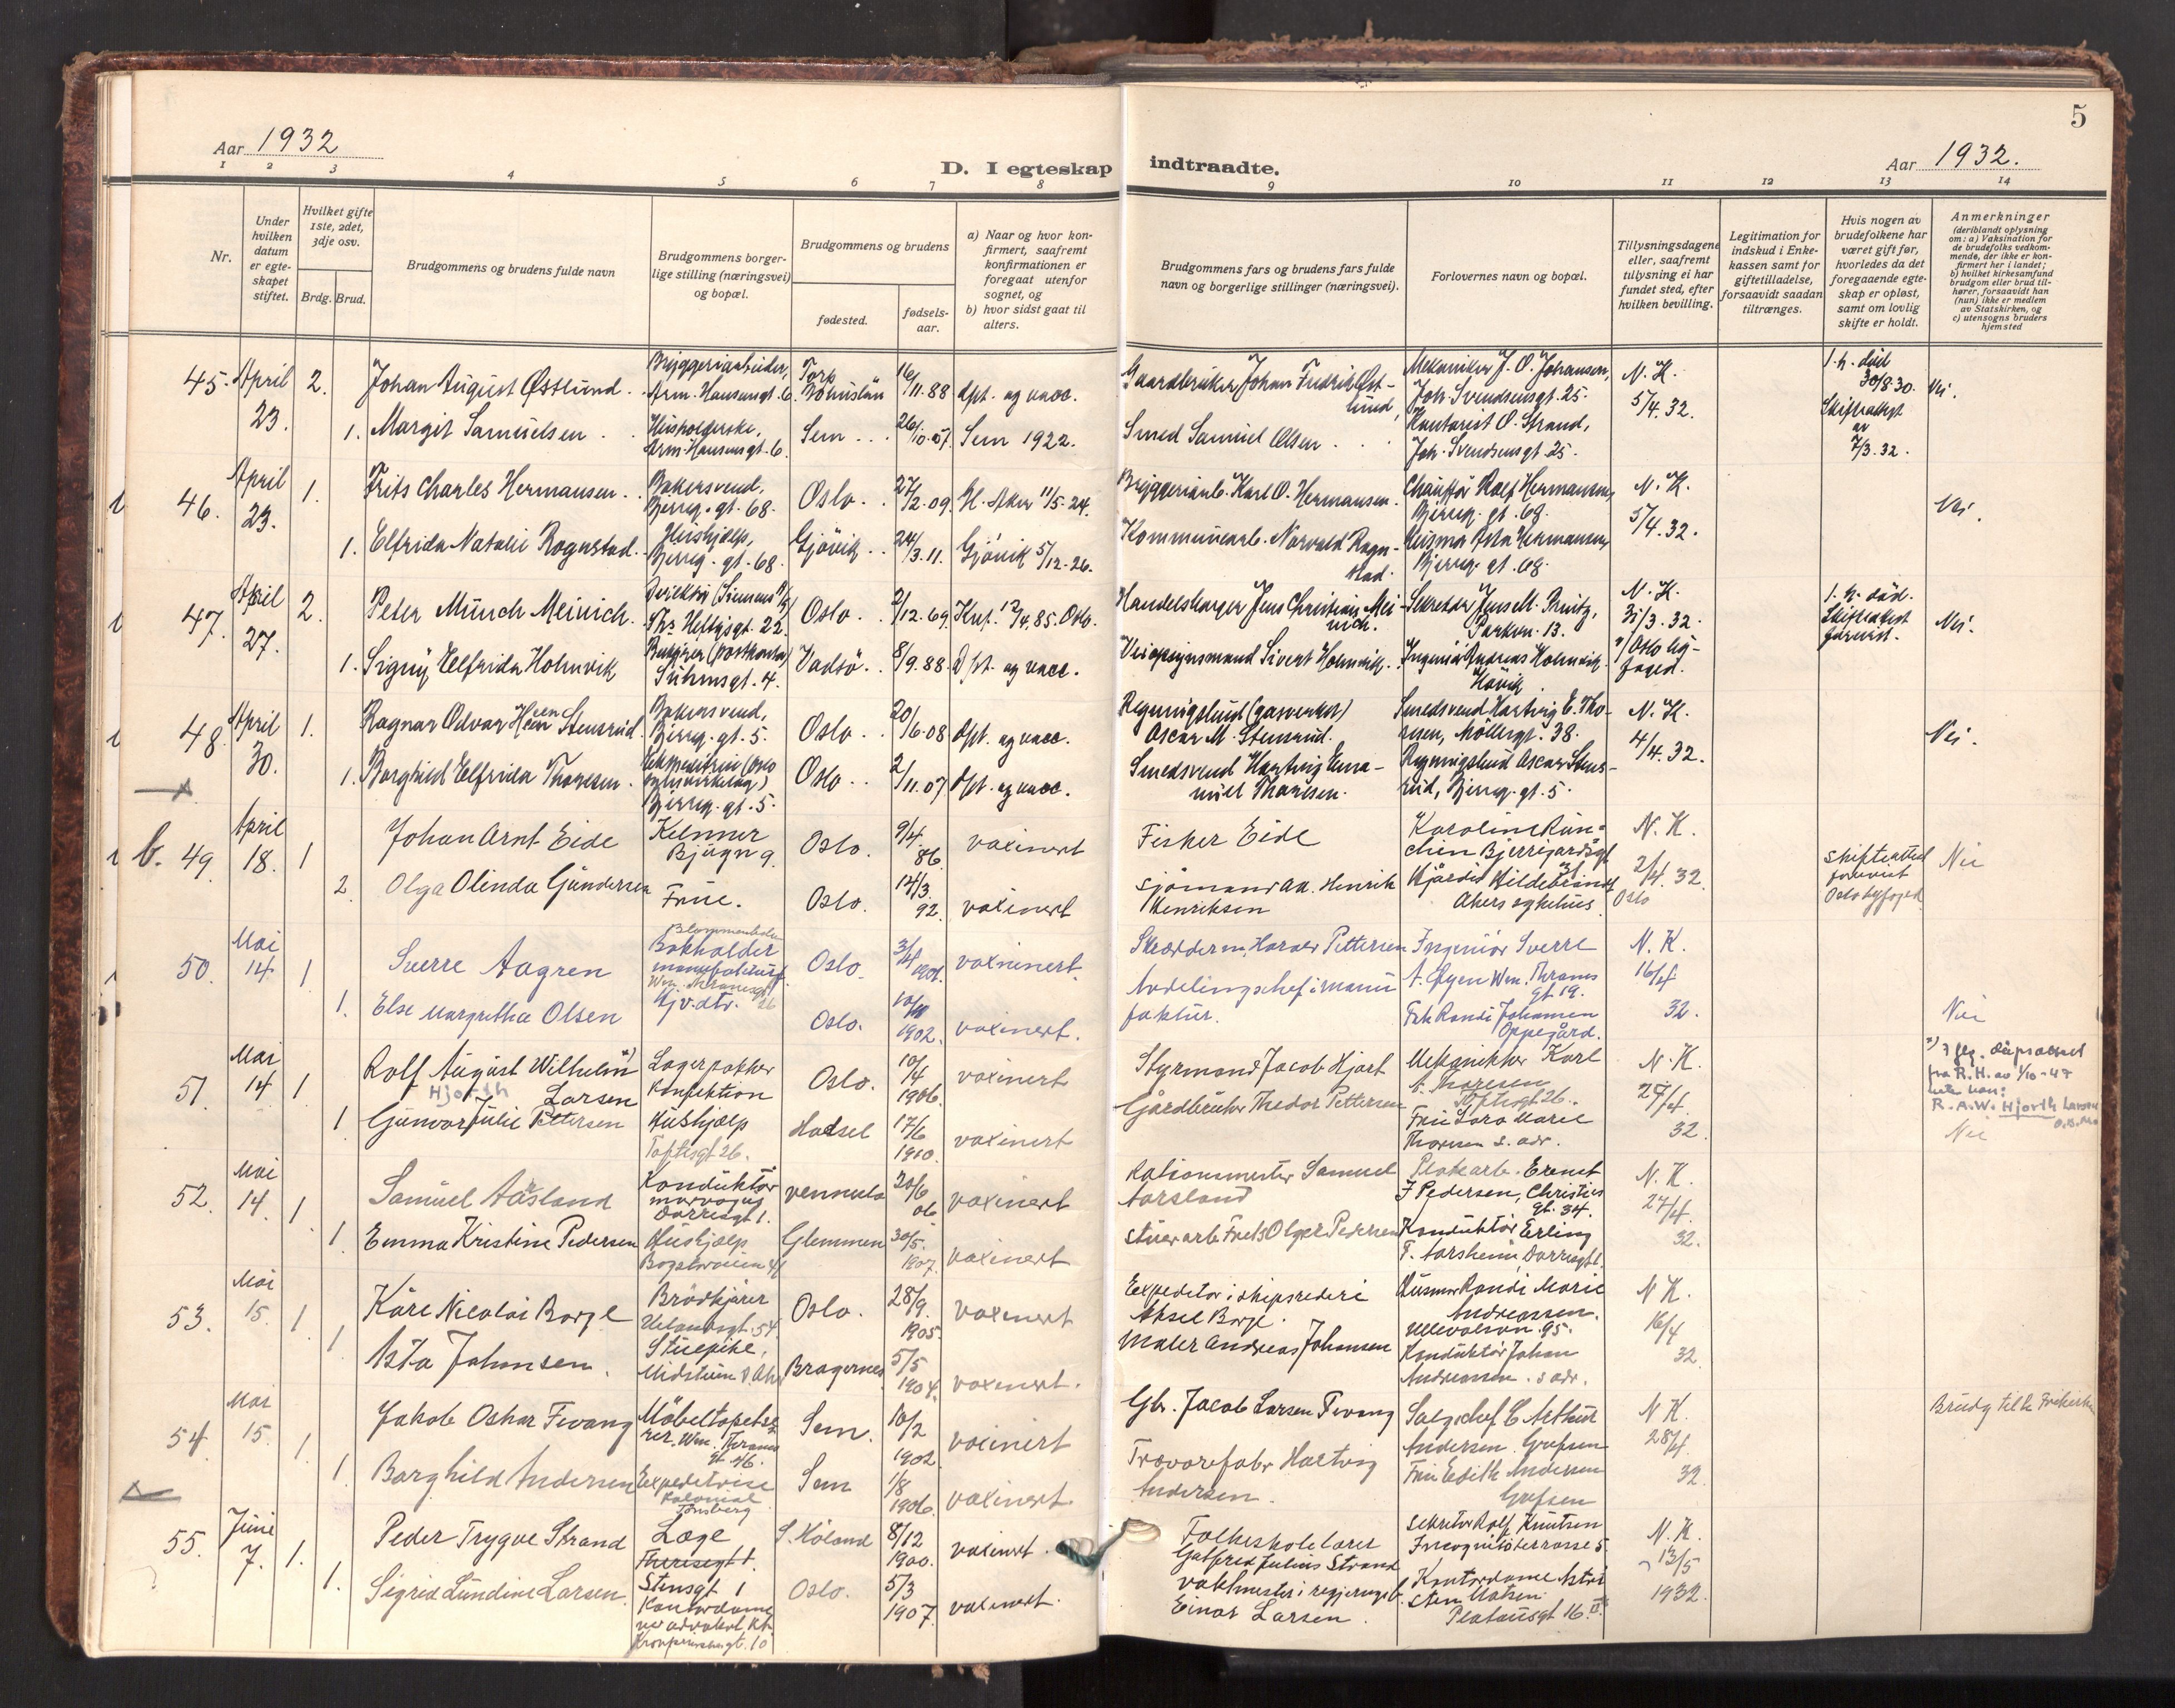 5
Aar 1932
D. I egteskap indtraadte.
Aar 1932.
1 2 3 4 5 6 7 8 9 10 11 12 13 14
Nr.
Under hvilken datum er egteskapet stiftet.
Hvilket gifte 1ste, 2det, 3dje osv.
Brdg. Brud.
Brudgommens og brudens fulde navn
Brudgommens borgerlige stilling (næringsvei) og bopæl.
Brudgommens og brudens
fødested.
fødselsaar.
a) Naar og hvor konfirmert, saafremt konfirmationen er foregaat utenfor sognet, og
b) hvor sidst gaat til alters.
Brudgommens fars og brudens fars fulde navn og borgerlige stillinger (næringsvei).
Forlovernes navn og bopæl.
Tillysningsdagene eller, saafremt tillysning ei har fundet sted, efter hvilken bevilling.
Legitimation for indskud i Enkekassen samt for giftetilladelse, forsaavidt saadan tiltrænges.
Hvis nogen av brudefolkene har været gift før, hvorledes da det foregaaende egteskap er opløst, samt om lovlig skifte er holdt.
Anmerkninger
(deriblandt oplysning om: a) Vaksination for de brudefolks vedkommende, der ikke er konfirmert her i landet; b) hvilket kirkesamfund brudgom eller brud tilhører, forsaavidt han (hun) ikke er medlem av Statskirken, og c) utensogns bruders hjemsted
45. April 23. 2. Johan August Østlund. Bryggeriarbeider, Arm. Hansensgt. 6. Torp Bohuslän 16/11.88 døpt. og vacc. Gaardbruker Johan Fredrik Østlund, Mekaniker J. O. Johansen, Joh. Svendsensgt. 25. N. K. 5/4.32. 1. h. død 30/8.30. Skifteattest av 7/3.32. Nei.
1. Margit Samuelsen. Husholderske, Arm. Hansensgt. 6. Sem 26/10.07. Sem 1922. Smed Samuel Olsen. Kontorist O. Strand, Joh. Svendsensgt. 25.
46. April 23. 1. Frits Charles Hermansen. Bakersvend, Bjerreg. gt. 68. Oslo. 27/2.09. Gl. Aker 11/5.24. Bryggeriarb. Karl O. Hermansen. Chauffør Rolf Hermansen, Bjerreg. gt. 68. N. K. 5/4.32. Nei.
1. Elfrida Natalie Rognstad. Hushjelp, Bjerreg. gt. 68. Gjövik 24/3.11. Gjövik 5/12.26. Kommunearb. Norvald Rognstad. Husmor Asta Hermansen, Bjerreg. gt. 68.
47. April 27. 2. Peter Münch Meinich. Direktør Ths. Heftyesgt. 22. Oslo. 2/12.69. Knf. 12/4.85. Oslo. Handelsborger Jens Christian Meinich. Sekretær Jens M. Parkvn. 13. N. K. 31/3.32. Oslo byfoged. 1. h. død. Skifteattest forevist. Nei.
1. Signy Elfrida Holmvik (postkontor) Suhmsgt. 4. Vadsö. 8/9.88. Døpt. og vacc. Veiopsynsmand Sivert Holmvik. Ingeniør Andreas Holmvik Hövik.
48. April 30. 1. Ragnar Odvar Stensrud. Bakersvend, Bjerreg. gt. 5. Oslo. 20/6.08 døpt. og vacc. (gasverket) Oscar M. Stensrud. Smedsvend Hartvig E. Thoresen, Möllergt. 38. N. K. 4/4.32. Nei.
1. Borghild Elfrida Thoresen. Bjerreg. gt. 5. Oslo. 2/11.07 døpt. og vacc. Smedsvend Hartvig Emanuel Thoresen. Oscar Stensrud, Bjerreg. gt. 5.
b. 49. April 18. 1 Johan Arnt Eide Kelnner Oslo. 9/4. 86. vaxinert Fisker Eide Karoline N. K. 2/4.32. Oslo skifteattest forevist Oslo byfoged Nei
2. Olga Olinda Gundersen Frue. Oslo. 14/3. 92. vaxinert Sjömand Henrik Henriksen Hjördis Hildebrandt Akers sykehus.
50. Mai 14 1 Sverre Aagren Bokholder Oslo. 3/4 1901. vaxinert. Skræddern. Harald Pettersen Ingeniør Sverre A. Øyen Wm. Thranes gt 19. N. K. 16/4 32. Nei
1. Else Margretha Olsen Hj.v.dtr. Oslo. 1902. vaxinert. Avdelingschef i manufaktur. Frk Randi Johansen Oppegård.
51. Mai 14 1 Rolf August Wilhelm x) Hjorth Larsen Lagerpakker Konfektion Oslo. 10/4 1906. vaxinert Styrmand Jacob Hjort Mekanikker Karl A. Thoresen Toftesgt 26. N. K. 24/4. 32. x) I flg. dåpsattest fra R.H. av 1/10-47 heter han: R.A.W. Hjorth Larsen Nei
1 Gunvor Julie Pettersen Hushjælp Toftesgt 26. Hadsel 17/6 1910. vaxinert Gårdbruker Thedor Pettersen Frue Lara Marie Thoresen s. adr.
52. Mai 14. 1. Samuel Aarsland Konduktör Dorresgt 1. Vennesla 20/6 06 vaxinert Stationsmester Samuel Aarsland Platearb. Ernest J Pedersen, Christies gt. 34. N. K. 24/4. 32.
1. Emma Kristine Pedersen Hushjælp Glemmen 30/5. 1907. vaxinert Stuerarb Olger Pedersen Konduktör Erling T. Aarsheim, Dorresgt 1.
53. Mai 15. 1. Kåre Nicolai Borge Brödkjører Uelandsgt. 54 Oslo. 28/9. 1905. vaxinert Expeditör i skipsrederi Aksel Borge. Husmor Randi Marie Andreassen. Ullevålsvn. 95. N K. 16/4 32.
1 Asta Johnsen. Stuepike, Bragernes 5/5 1904. vaxinert. Maler Andreas Johansen Konduktör Johan Andreassen. s adr.
54. Mai 15. 1. Jakob Oskar Fevang Möbeltapetserer. Wm. Thranes gt 46. Sem. 10/2 1902. vaxinert Gbr. Jacob Larsen Fevang Salgschef C Arthur Andersen Grefsen N K. 28/4. 32. Brudg tilh Frikirken
1 Borghild Andersen Expeditrise kolonial Tönsberg Sem 1/8 1906. vaxinert. Trævarefabr Hartvig Andersen. Frue Edith Andersen Grefsen
55. Juni 7. 1. Peder Trygve Strand Læge Theresegt 1. Stensgt 1 S. Höland 8/12 1900. vaxinert. Folkeskolelærer Gotfred Julius Strand Sekretær Rolf Knutsen Incognitoterrasse 5 N. K. 13/5 1932.
1. Sigrid Lundine Larsen. Kontordame Oslo. 5/3 1907. vaxinert. Vaktmester i regjeringsb. Einar Larsen. Kontordame Platousgt 16.